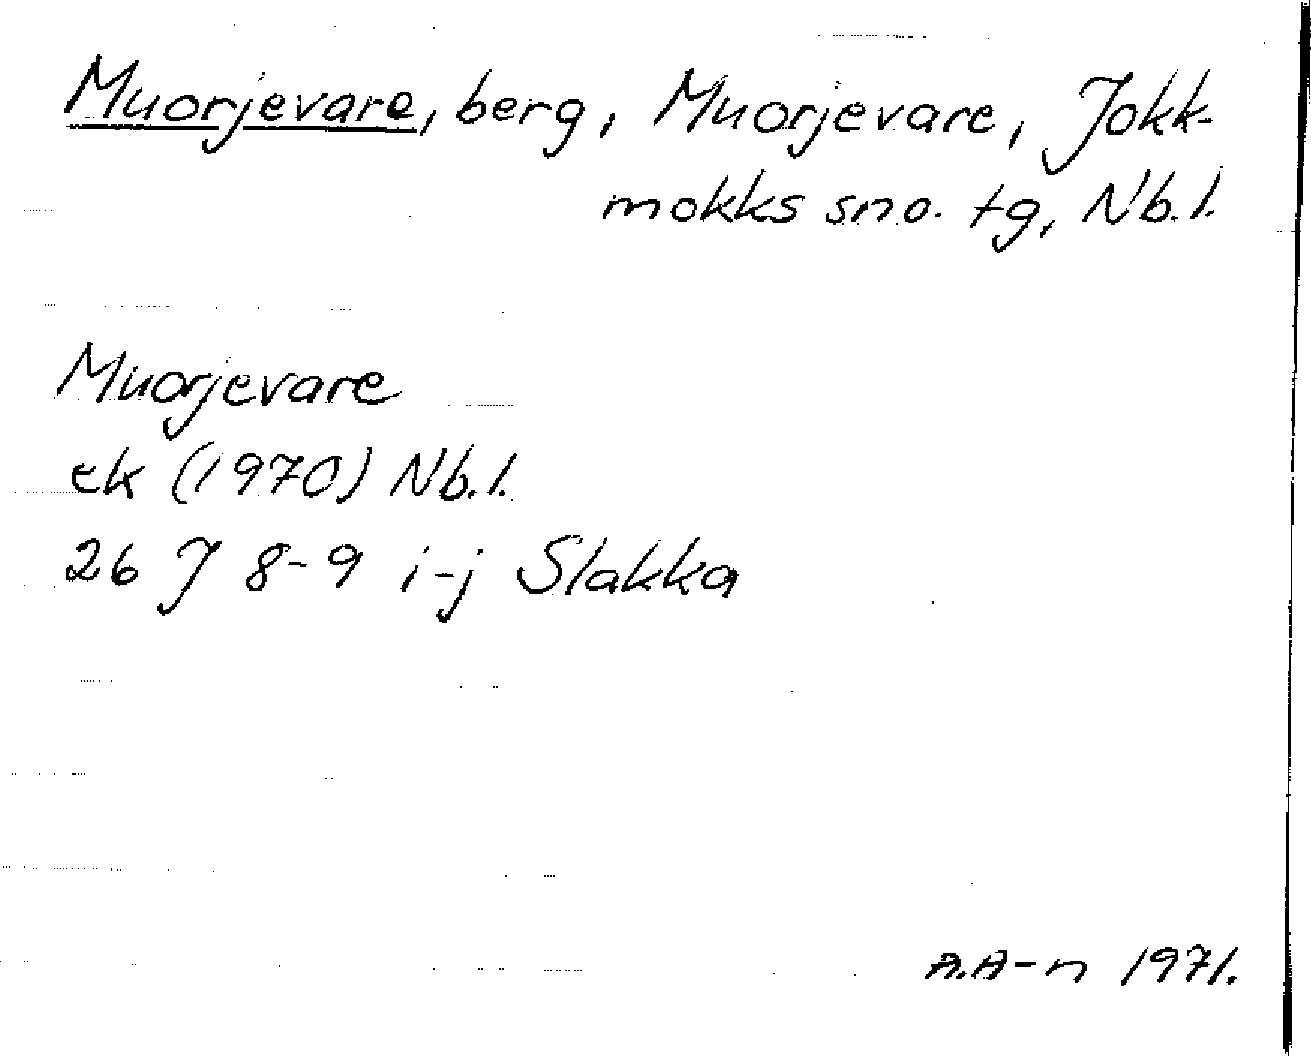 Muorjevare, berg, Muorjevare, Jokk-
mokks sno. tg, Nb.l.
Muorjevare
ek (1970) Nb.l.
26 J 8-9 i-j Slakka
A.A-n 1971.